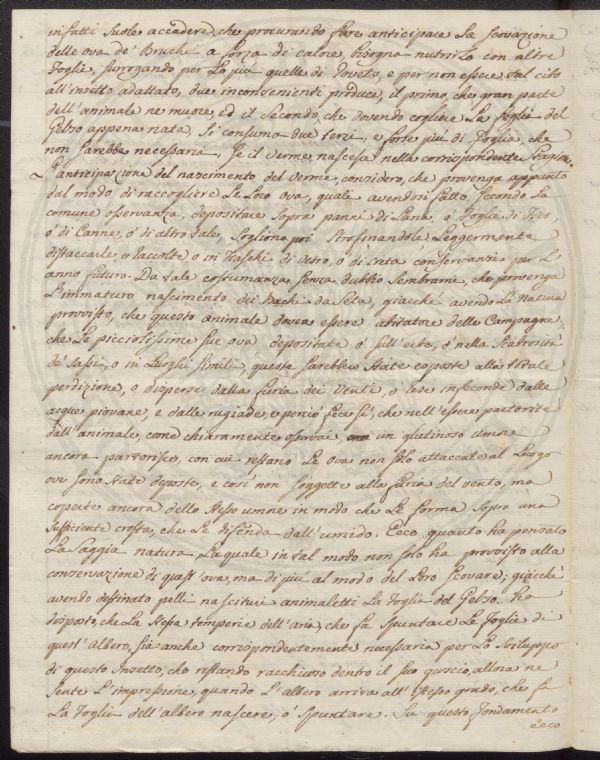 infatti suole accadere, che procurando fare anticipare la scovazione
delle ova de' Bruchi a forza di calore, bisogna nutrirlo con altre
foglie, surrogando per lo più quelle di Roveto, e per non essere tal cibo
all'insetto adattato, due inconvenienti produce, il primo, che gran parte
dell'animale ne muore, ed il secondo, che dovendo cogliere le foglie del
Gelso appena nata, si consuma due terzi, e forse più di foglia, che
non sarebbe necessaria, se il verme nascesse nella corrispondente stagione.
L'anticipazione del nascimento del verme, considero, che provenga appunto
dal modo di raccogliere le loro ova, quale avendosi fatto, secondo la
comune osservanza, depositare sopra panni di lana, o' foglie di Fico,
o' di Canne, o' di altro tale, sogliono poi strofinandole leggermente
distaccarle, e raccolte o in fiaschi di vetro, o' di creta conservarsi per l'
anno futuro. Da tale costumanza senza dubbio sembrami, che provenga
l'immaturo nascimento de' Bachi da Seta, giacché avendo la natura
provvisto, che questo animale dovea essere abitatore delle Campagne,
che le picciolissime sue ova depositate o' sull'erbe, o' nella scabrosità
de' sassi, o in luoghi simili, queste sarebbero state esposte alla totale
perdizione, o disperse dalla furia dei venti, o' rese infeconde dalle
acque piovane, e dalle rugiade, e perciò fece sì, che nell'essere partorite
dall'animale, come chiaramente osservai, un glutinoso umore
ancora partorisce, con cui restano le ova non solo attaccate al luogo
ove sono state deposte, e così non soggette alla furia del vento, ma
coperte ancora dello stesso umore in modo che le forma sopra una
sufficiente crosta, che le difenda dall'umido. Ecco quanto ha pensato
la saggia natura la quale in tal modo non solo ha provvisto alla
conservazione di quest'ova, ma di più al modo del loro scovare, giacché
avendo destinato pelli nascituri animaletti la foglia del Gelso. ha
disposto, che la stessa temperie dell'aria, che fa spuntare le foglie di
quest'albero, sia anche corrispondentemente necessaria per lo sviluppo
di questo Insetto, che restando racchiuso dentro il suo guscio, allora ne
sente l'impressione, quando l'albero arriva all'istesso grado, che fa
la foglia dell'albero nascere, o' spuntare. Su questo fondamento
ecco